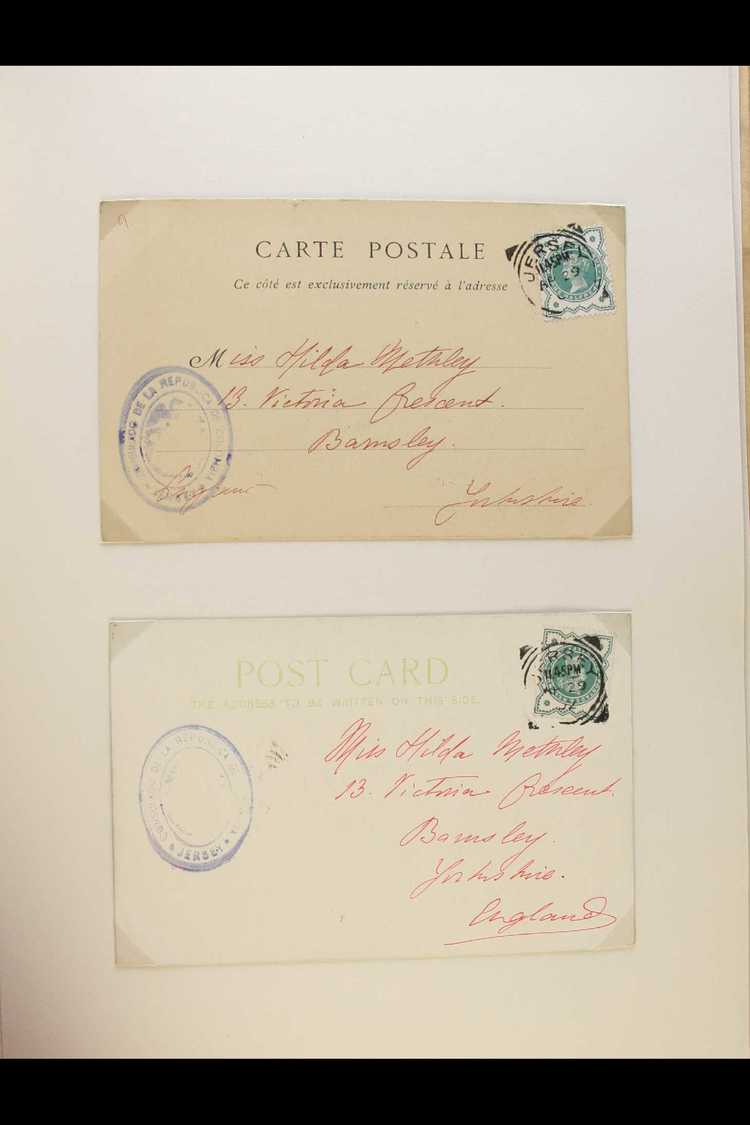 CARTE POSTALE
Ce côté est exclusivement réservé à l'adresse
JERSEY
11.45PM
29
Miss Hilda Methley
13. Victoria Crescent.
Barnsley.
Yorkshire.
CONSULADO DE LA REPUBLICA DE
POST CARD
THE ADDRESS TO BE WRITTEN ON THIS SIDE.
JERSEY
11.45PM
29
02
Miss Hilda Methley
13. Victoria Crescent.
Barnsley.
Yorkshire.
England
CONSULADO DE LA REPUBLICA DE
JERSEY